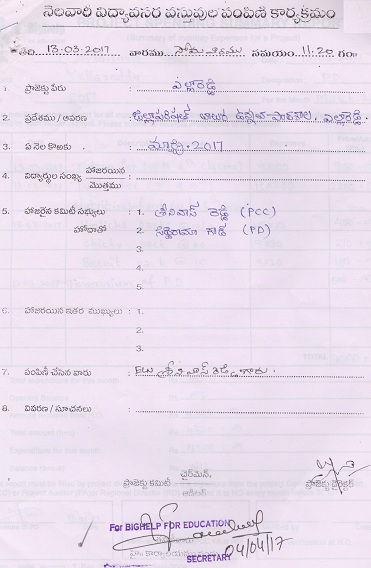 నెలవారి విద్యావసర వస్తువుల పంపిణి కార్యక్రమం
తేది. 13-03-2017 వారము సోమవారము సమయం 11.20 గం॥
1. ప్రాజెక్టు పేరు : ఎల్లారెడ్డి
2. ప్రదేశము / ఆవరణ : జిల్లాపరిషత్ బాలుర ఉన్నత పాఠశాల, ఎల్లారెడ్డి.
3. ఏ నెల కొఱకు : మార్చి. 2017
4. విద్యార్థుల సంఖ్య హాజరయిన మొత్తము :
5. హాజరైన కమిటీ సభ్యులు : 1. శ్రీనివాస్ రెడ్డి (PCC)
హోదాతో 2. గౌడ్ (PD)
3.
4.
5.
6. హాజరయిన ఇతర ముఖ్యులు : 1.
2.
3.
7. పంపిణీ చేసిన వారు : శ్రీనివాస్ రెడ్డి గారు.
8. వివరణ / సూచనలు :
ఛైర్మెన్,
ప్రాజెక్టు కమిటీ
ఆడిటర్
ప్రాజెక్టు డైరెక్టర్
For BIGHELP FOR EDUCATION
SECRETARY 04/04/17